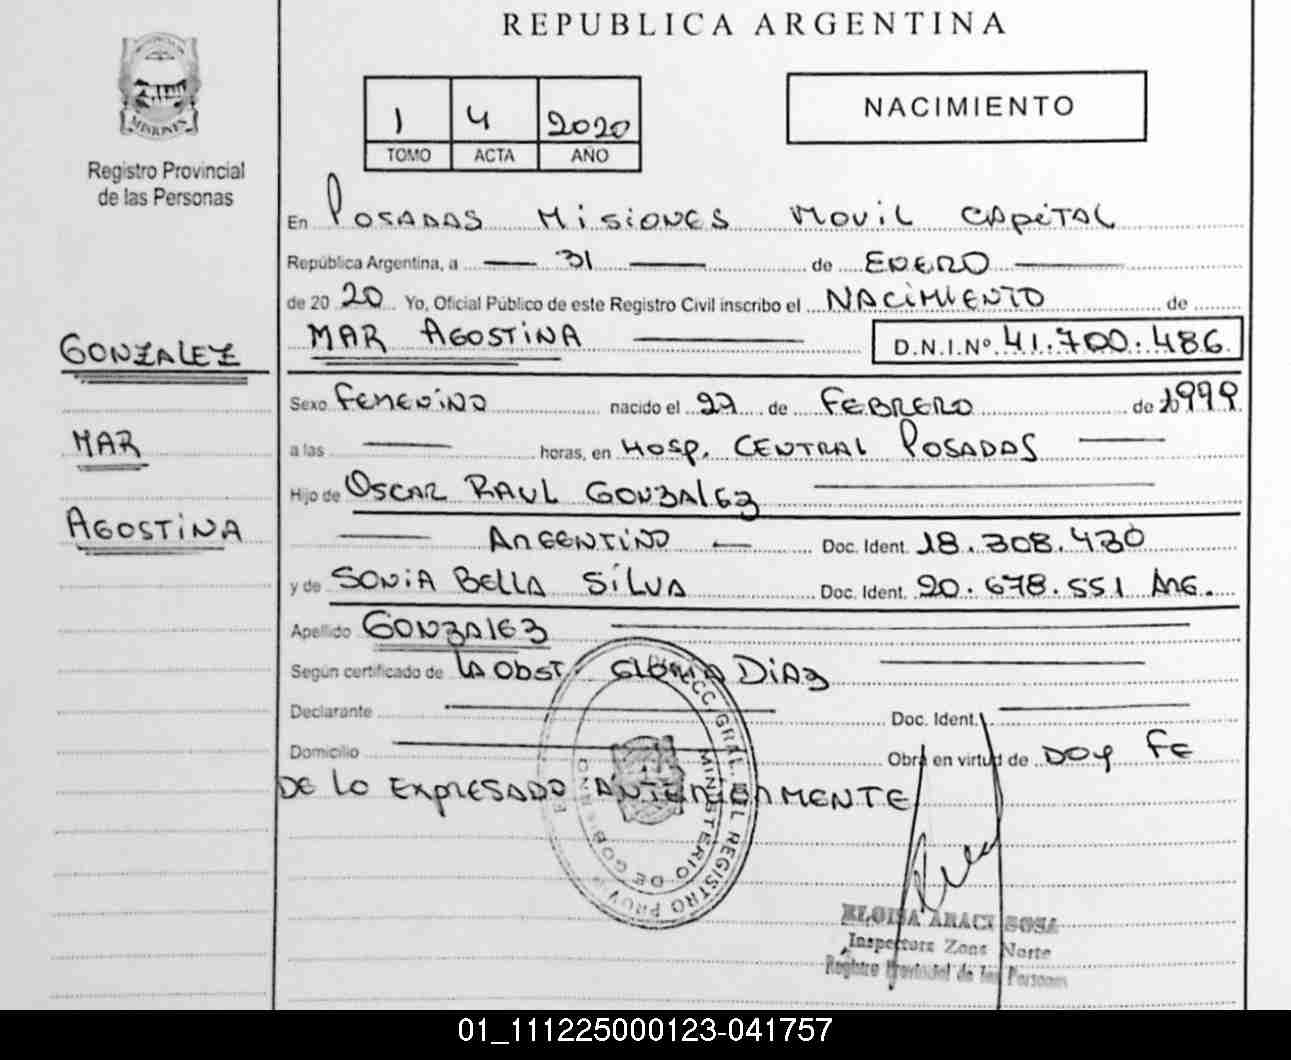 REPUBLICA ARGENTINA
MISIONES
Registro Provincial
de las Personas
1 4 2020
TOMO ACTA AÑO
NACIMIENTO
En POSADAS MISIONES MOVIL CAPITAL
República Argentina, a 31 de ENERO
de 20 20 Yo, Oficial Público de este Registro Civil inscribo el NACIMIENTO de
MAR AGOSTINA D.N.I.Nº 41.700.486
GONZALEZ
MAR
AGOSTINA
Sexo FEMENINO nacido el 27 de FEBRERO de 1999
a las horas, en HOSP. CENTRAL POSADAS
Hijo de OSCAR RAUL GONZALEZ
ARGENTINO Doc. Ident. 18.308.430
y de SONIA BELLA SILVA Doc. Ident. 20.678.551 ARG.
Apellido GONZALEZ
Según certificado de LA OBST. GLORIA DIAZ
Declarante Doc. Ident.
Domicilio Obra en virtud de DOY FE
DE LO EXPRESADO ANTERIORMENTE
GRAL. DEL REGISTRO PROV
MINISTERIO DE GOBIERNO
ELOISA ARACI SOSA
Inspectora Zona Norte
Registro Provincial de las Personas
01_111225000123-041757